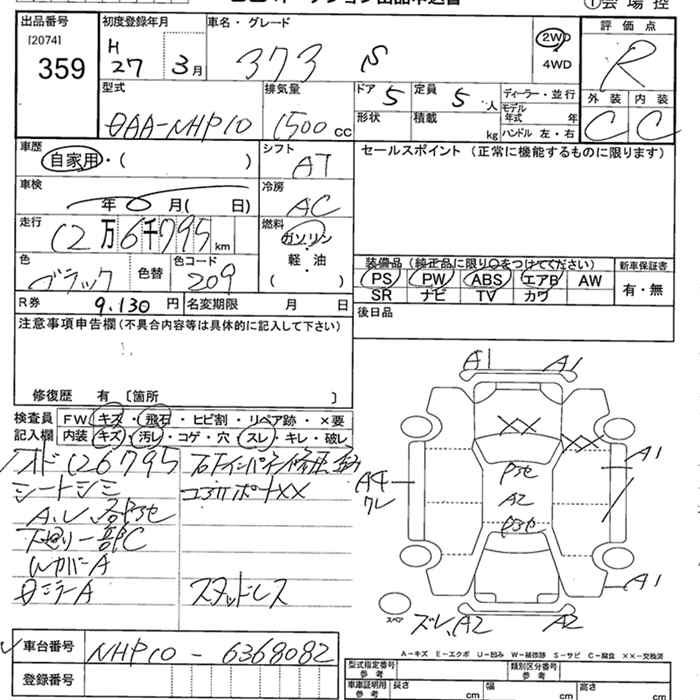 出品番号
[2074]
359
初度登録年月
H
27 3月
車名・グレード
373 S
2WD
4WD
評価点
R
型式
DAA-NHP10
排気量
1500 CC
ドア 5
形状
定員 5 人
積載 kg
ディーラー・並行
モデル年式 年
ハンドル 左・右
外装 内装
C C
車歴
自家用・( )
シフト
AT
セールスポイント (正常に機能するものに限ります)
車検
年 0 月( 日)
冷房
AC
走行
12万6千795km
燃料
ガソリン
軽・油
( )
色
ブラック
色替
色コード
209
装備品 (純正品に限り○をつけてください)
PS PW ABS エアB AW
SR ナビ TV カワ
新車保証書
有・無
R券 9.130 円
名変期限 月 日
後日品
注意事項申告欄 (不具合内容等は具体的に記入して下さい)
修復歴 有 〔箇所 〕
検査員 FW キズ・飛石・ヒビ割・リペア跡・×要
記入欄 内装 キズ・汚レ・コゲ・穴・スレ・キレ・破レ
シートシミ
コアサポートXX
下廻り一部C
WカバーA
スタッドレス
A1 A1
XX XX
A1
A4
ワレ
A2
A1
スペア
ズレ、A2 A2
車台番号 NHP10 - 6368082
登録番号
A-キズ E-エクボ U-凹み W-補修跡 S-サビ C-腐食 ××-交換済
型式指定番号
参考
類別区分番号
参考
車庫証明用
参考
長さ cm 幅 cm 高さ cm